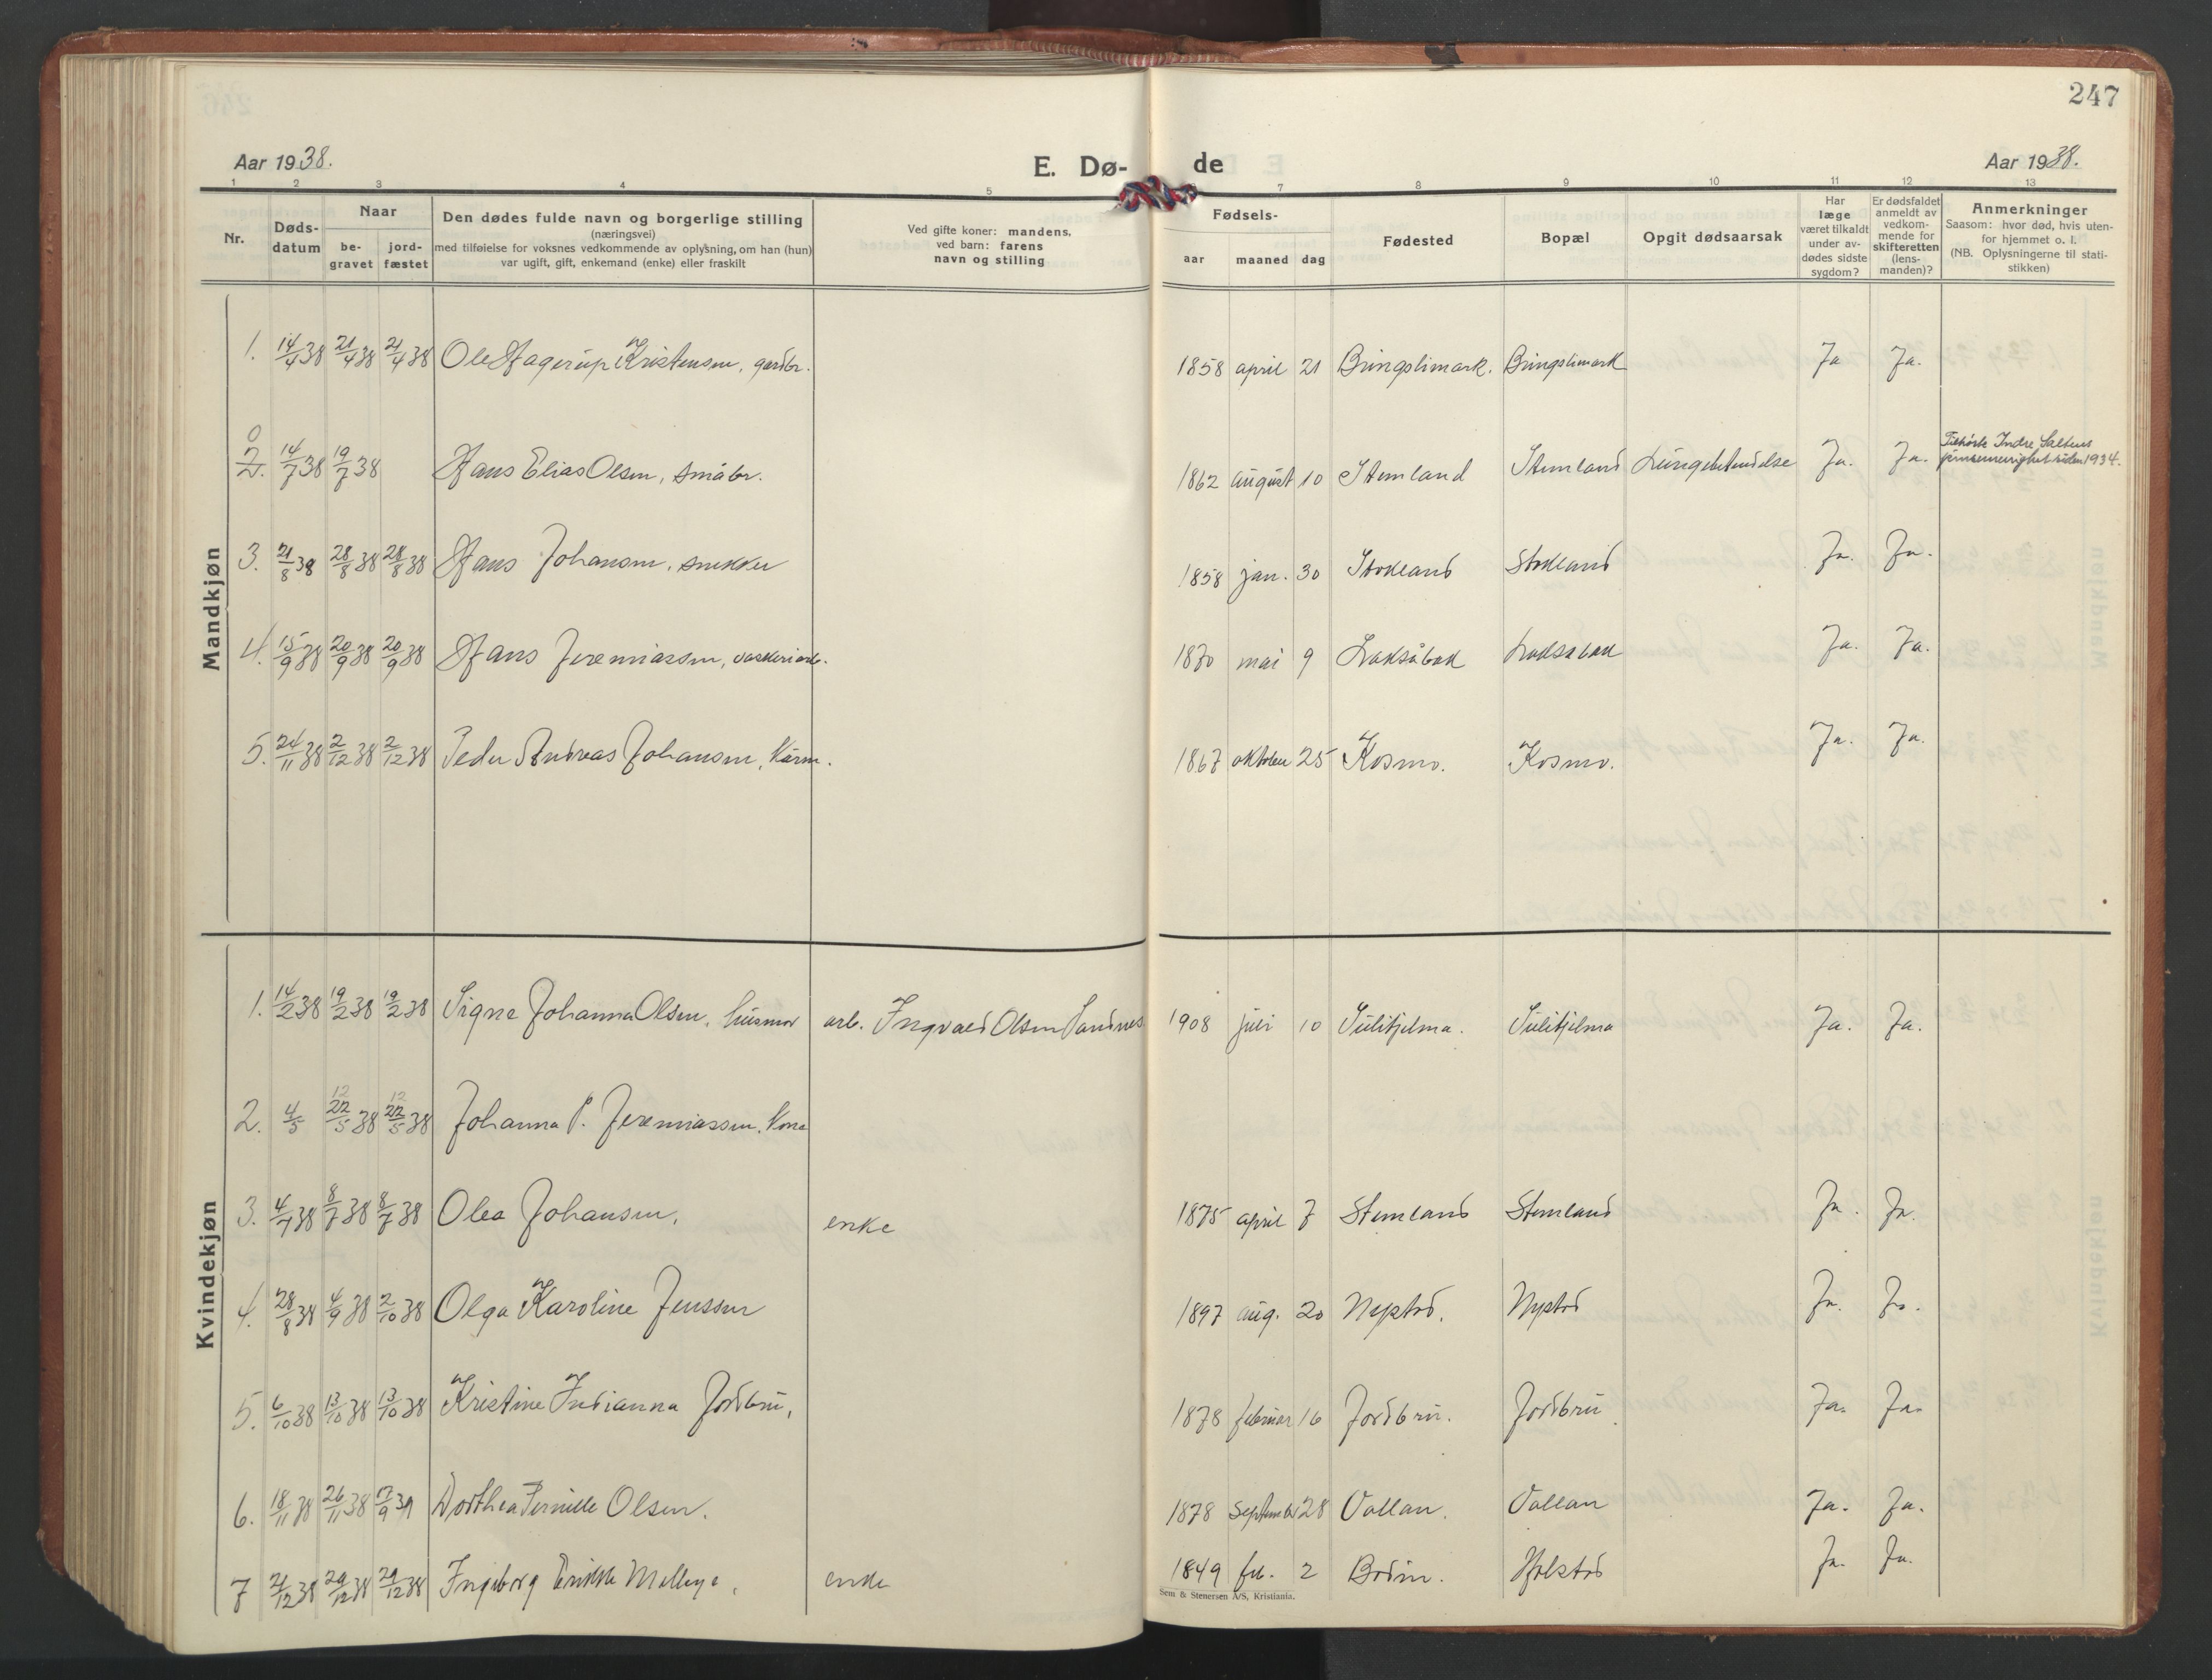 247
Aar 1938.
E. Dø-
de
Aar 1938.
1 2 3 4 5 7 8 9 10 11 12 13
Nr.
Døds-
datum
Naar
be-
gravet
jord-
fæstet
Den dødes fulde navn og borgerlige stilling
(næringsvei)
med tilføielse for voksnes vedkommende av oplysning, om han (hun)
var ugift, gift, enkemand (enke) eller fraskilt
Ved gifte koner: mandens,
ved barn: farens
navn og stilling
Fødsels-
aar maaned dag
Fødested
Bopæl
Opgit dødsaarsak
Har
læge
været tilkaldt
under av-
dødes sidste
sygdom?
Er dødsfaldet
anmeldt av
vedkom-
mende for
skifteretten
(lens-
manden)?
Anmerkninger
Saasom: hvor død, hvis uten-
for hjemmet o. l.
(NB. Oplysningerne til stati-
stikken)
Mandkjøn
1. 14/4 38 21/4 38 21/4 38 Ole Hagerup Kristensen, gardbr. 1858 april 21 Bringslimark. Bringslimark Ja Ja.
0
2. 14/7 38 19/7 38 Hans Elias Olsen, småbr. 1862 august 10 Stemland Stemland Lungebetendelse Ja. Ja. Tilhørte Indre Saltens
siden 1934.
3. 21/8 38 28/8 38 28/8 38 Hans Johansen, snekker 1858 jan. 30 Stokland Stokland Ja. Ja.
4. 15/9 38 20/9 38 20/9 38 Hans Jeremiassen, vaskeriarb. 1870 mai 9 Laksåbak Laksabak Ja. Ja.
5. 24/11 38 2/12 38 2/12 38 Peder Andreas Johansen, Kårm. 1867 oktober 25 Kosmo. Kosmo. Ja. Ja.
Kvindekjøn
1. 14/2 38 19/2 38 19/2 38 Signe Johanna Olsen, husmor arb. Ingvald Olsen Sandnes 1908 juli 10 Sulitjelma. Sulitjelma Ja. Ja.
12 12
2. 4/5 22/5 38 22/5 38 Johanna P. Jeremiassen, Kone
3. 4/7 38 8/7 38 8/7 38 Olea Johansen, enke 1875 april 7 Stemland Stemland Ja. Ja.
4. 28/8 38 4/9 38 2/10 38 Olga Karoline Jenssen 1897 aug. 20 Nystad. Nystad Ja. Ja.
5. 6/10 38 13/10 38 13/10 38 Kristine Indianna Jordbru, 1878 februar 16 Jordbru. Jordbru. Ja. Ja.
6. 18/11 38 26/11 38 17/9 39 Dorthea Pernille Olsen. 1878 September 28 Vallan. Vallan Ja. Ja.
7 21/12 38 29/12 38 29/12 38 Ingeborg Erikke enke 1849 feb. 2 Bodin. Holstad Ja. Ja.
Sem & Stenersen A/S, Kristiania.